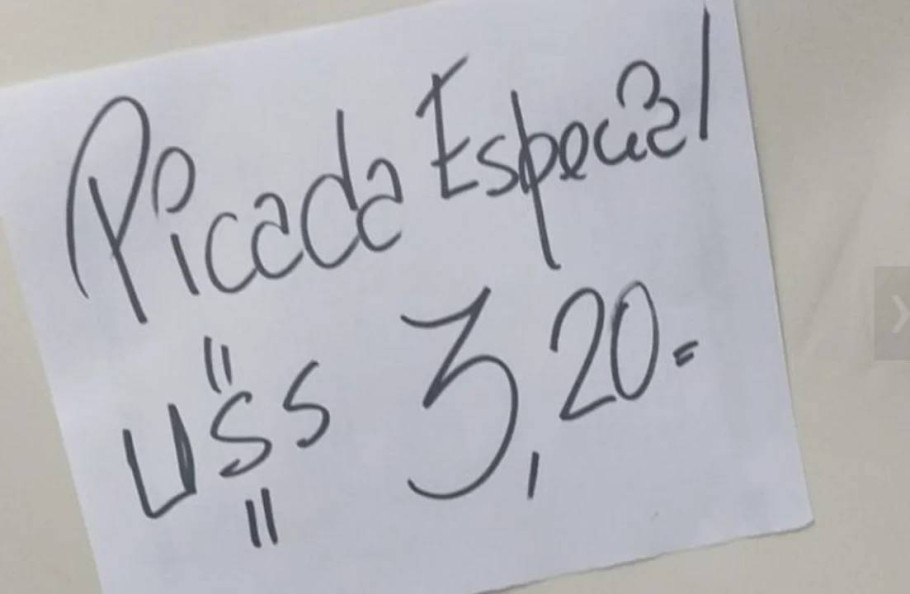 Picada Especial
U$S 3,20.=